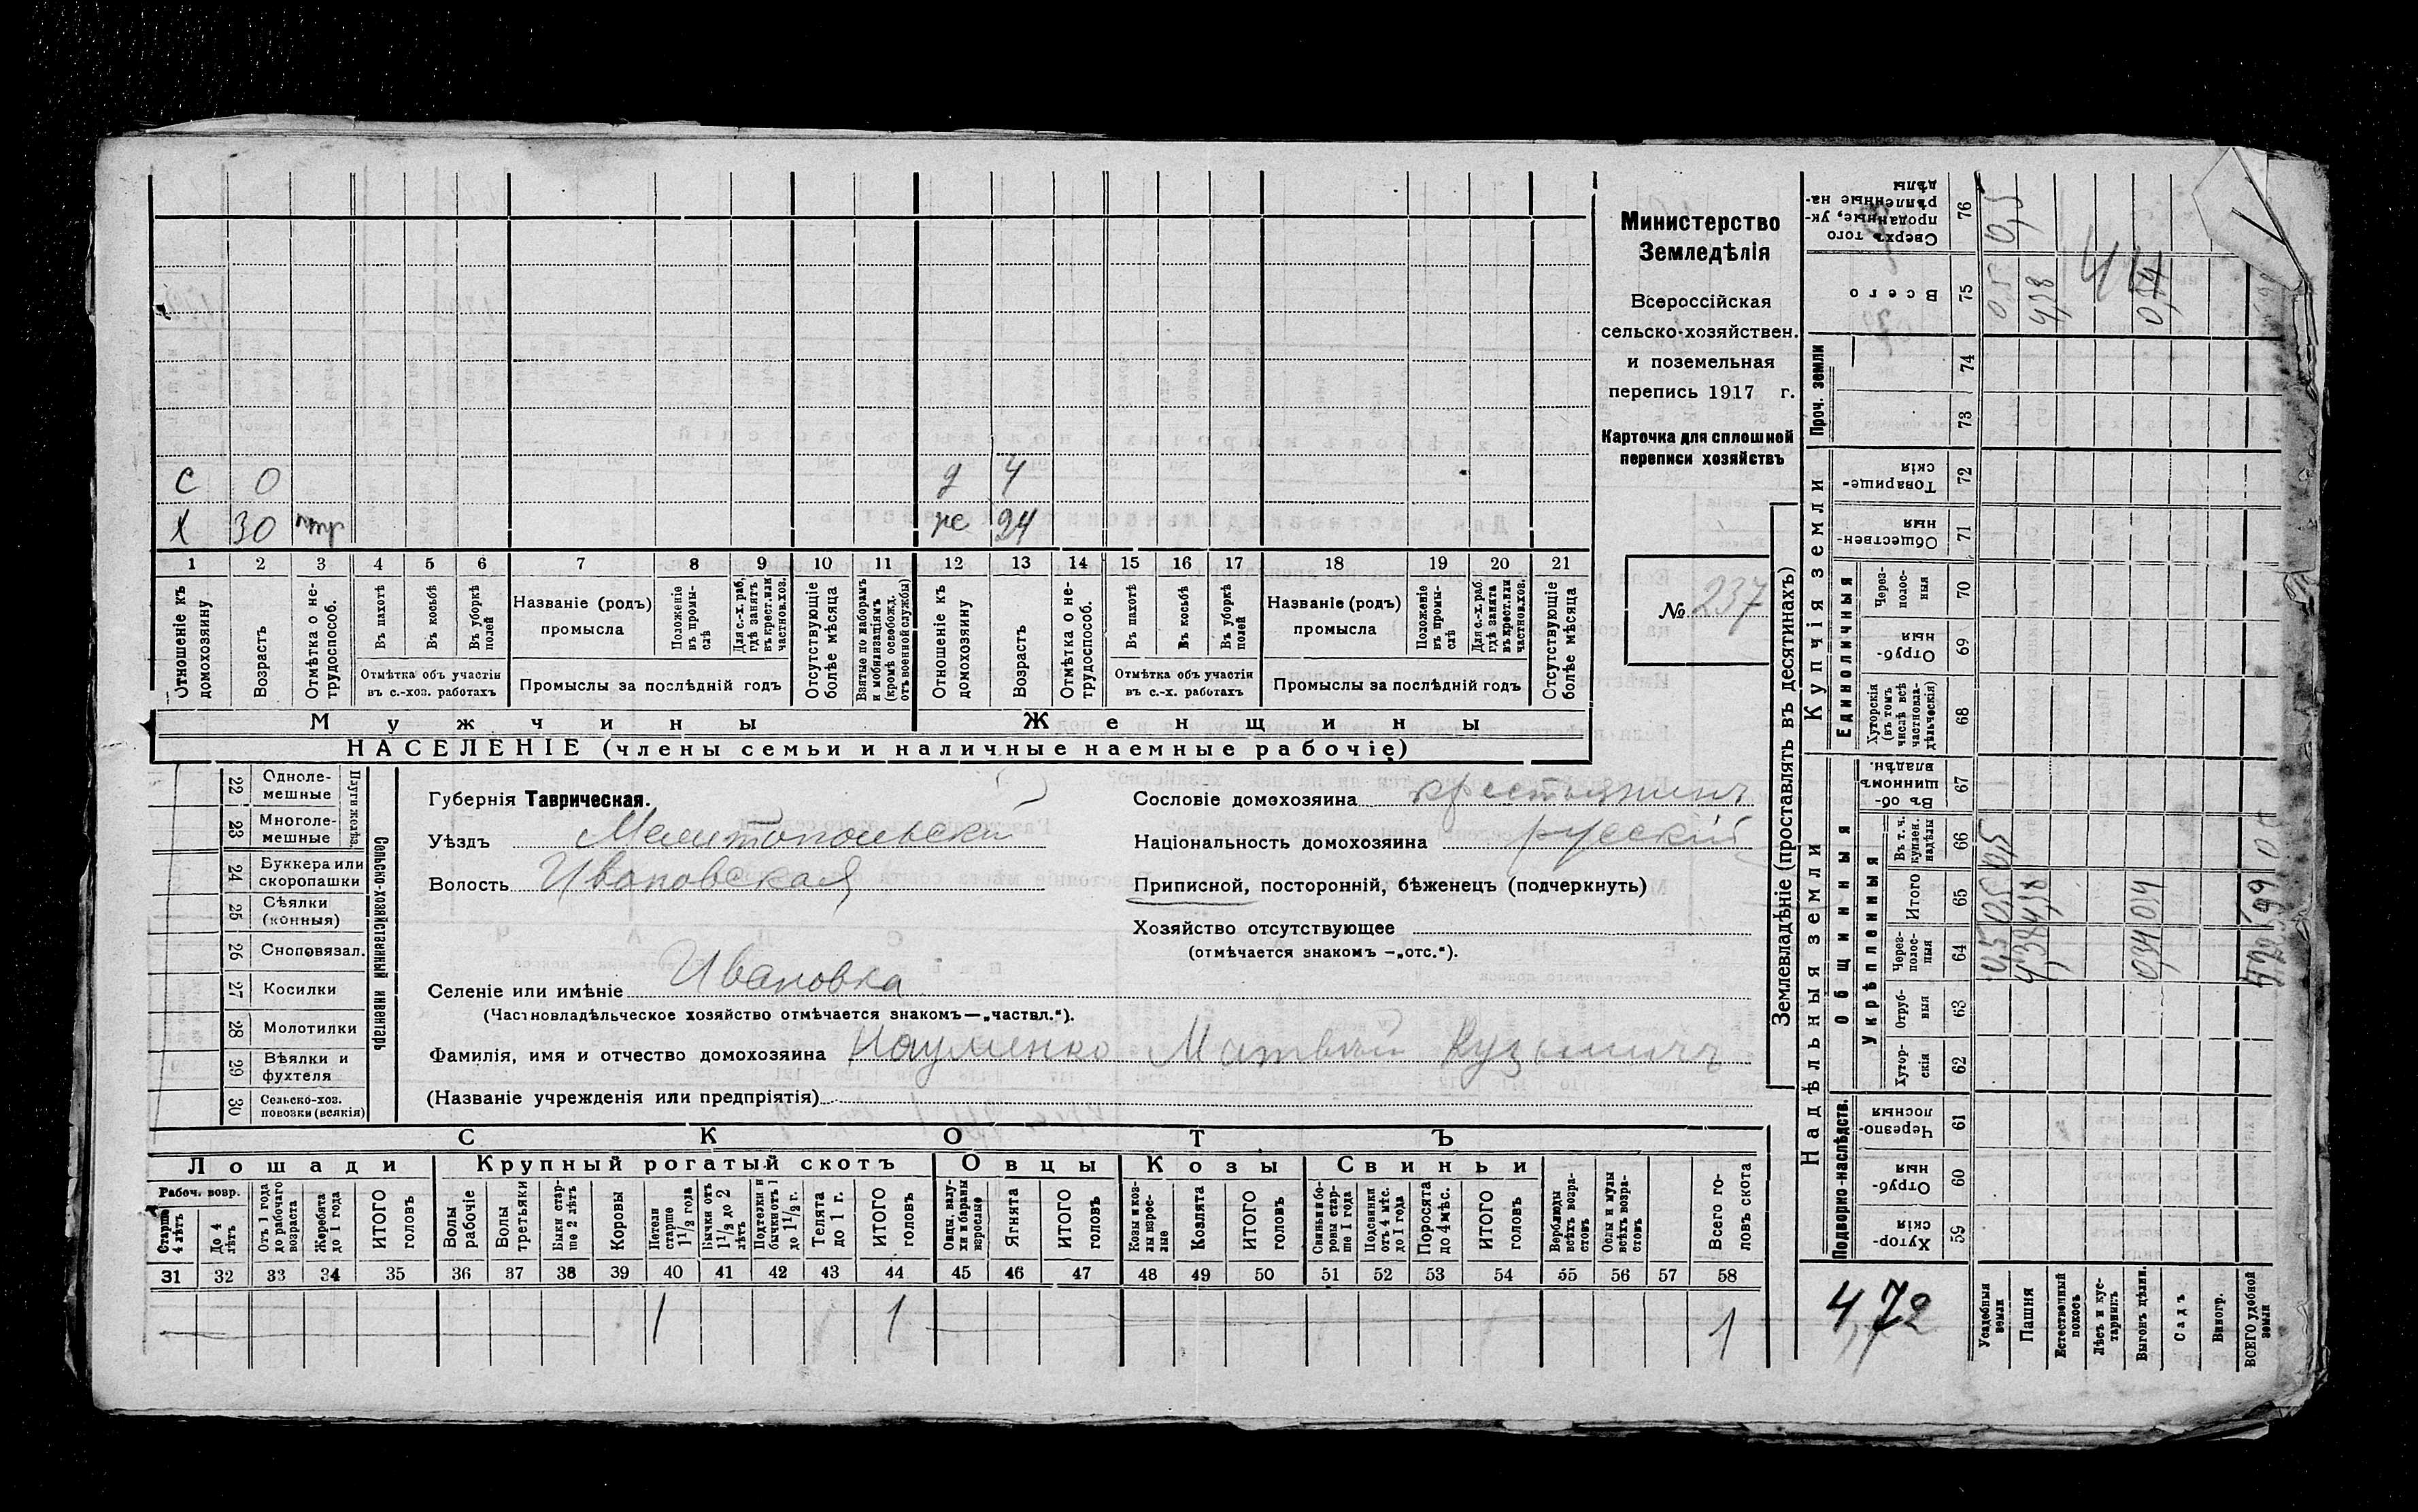 Министерство
Земледѣлія
Всероссійская
сельско-хозяйствен.
и поземельная
перепись 1917 г.
Карточка для сплошной
переписи хозяйствъ
№ 237
с 0 д 4
х 30 же 24
1 2 3 4 5 6 7 8 9 10 11 12 13 14 15 16 17 18 19 20 21
Отношеніе къ домохозяину
Возрастъ
Отмѣтка о не-трудоспособ.
Въ пахотѣ
Въ косьбѣ
Въ уборкѣ полей
Отмѣтка объ участіи
въ с.-хоз. работахъ
Названіе (родъ)
промысла
Положеніе въ промы-слѣ
Для с.-х. раб. гдѣ занятъ въ крест. или частнов. хоз.
Промыслы за послѣдній годъ
Отсутствующіе болѣе мѣсяца
Взятые по наборамъ и мобилизаціямъ (кромѣ освобожд. отъ военной службы)
Отношеніе къ домохозяину
Возрастъ
Отмѣтка о не-трудоспособ.
Въ пахотѣ
Въ косьбѣ
Въ уборкѣ полей
Отмѣтка объ участіи
въ с.-х. работахъ
Названіе (родъ)
промысла
Положеніе въ промы-слѣ
Для с.-х. раб. гдѣ занята въ крест. или частнов. хоз.
Промыслы за послѣдній годъ
Отсутствующіе болѣе мѣсяца
Мужчины Женщины
НАСЕЛЕНІЕ (члены семьи и наличные наемные рабочіе)
22 Однолемешные
23 Многолемешные
24 Буккера или скоропашки
25 Сѣялки (конныя)
26 Сноповязал.
27 Косилки
28 Молотилки
29 Вѣялки и фухтеля
30 Сельско-хоз. повозки (всякія)
Сельско-хозяйственный инвентарь
Губернія Таврическая.
Уѣздъ Мелитопольски
Волость Ивановская
Сословіе домохозяина крестьянинъ
Національность домохозяина русскій
Приписной, посторонній, бѣженецъ (подчеркнуть)
Хозяйство отсутствующее
(отмѣчается знакомъ —„отс.“).
Селеніе или имѣніе Ивановка
(Частновладѣльческое хозяйство отмѣчается знакомъ—„частвл.“).
Фамилія, имя и отчество домохозяина Науменко Матвѣй Кузьмичъ
(Названіе учрежденія или предпріятія)
СКОТЪ
Лошади Крупный рогатый скотъ Овцы Козы Свиньи
Рабоч. возр.
Старше 4 лѣтъ
До 4 лѣтъ
Отъ 1 года до рабочаго возраста
Жеребята до 1 года
ИТОГО головъ
Волы рабочіе
Волы третьяки
Быки старше 2 лѣтъ
Коровы
Нетели старше 1 1/2 года
Бычки отъ 1 1/2 до 2 лѣтъ
Подтелки и бычки отъ 1 до 1 1/2 г.
Телята до 1 г.
ИТОГО головъ
Овцы, валухи и бараны взрослые
Ягнята
ИТОГО головъ
Козы и козлы взрослые
Козлята
ИТОГО головъ
Свиньи и боровы старше 1 года
Подсвинки отъ 4 мѣс. до 1 года
Поросята до 4 мѣс.
ИТОГО головъ
Верблюды всѣхъ возрастовъ
Ослы и мулы всѣхъ возрастовъ
Всего головъ скота
31 32 33 34 35 36 37 38 39 40 41 42 43 44 45 46 47 48 49 50 51 52 53 54 55 56 57 58
1 1 1
Землевладѣніе (проставлять въ десятинахъ)
Надѣльныя земли Купчія земли Проч. земли
Подворно-наслѣдств.
Общинныя
Укрѣпленныя
Единоличныя
Хуторскія 59
Отрубныя 60
Черезполосныя 61
Хуторскія 62
Отрубныя 63
Черезполосныя 64
Итого 65
Въ т. ч. куплен. надѣлы 66
Въ общинномъ владѣн. 67
Хуторскія (въ томъ числѣ всѣ частновладѣльческія) 68
Отрубныя 69
Черезполосныя 70
Общественныя 71
Товарищескія 72
73
74
Всего 75
Сверхъ того проданные, укрѣпленные надѣлы 76
Усадебныя земли 0,5 0,5 0,5 0,5 0,5
Пашня 4,38 4,38 4,38
Естественный покосъ
Лѣсъ и кустарникъ
Выгонъ цѣлин. 0,34 0,34
Садъ
Виногр.
ВСЕГО удобной земли
4,72